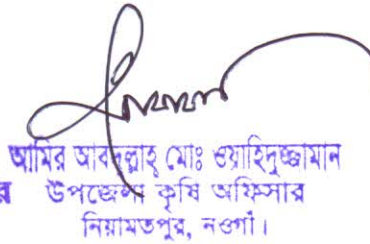 আমির আবদুল্লাহ্ মোঃ ওয়াহিদুজ্জামান
র উপজেলা কৃষি অফিসার
নিয়ামতপুর, নওগাঁ।